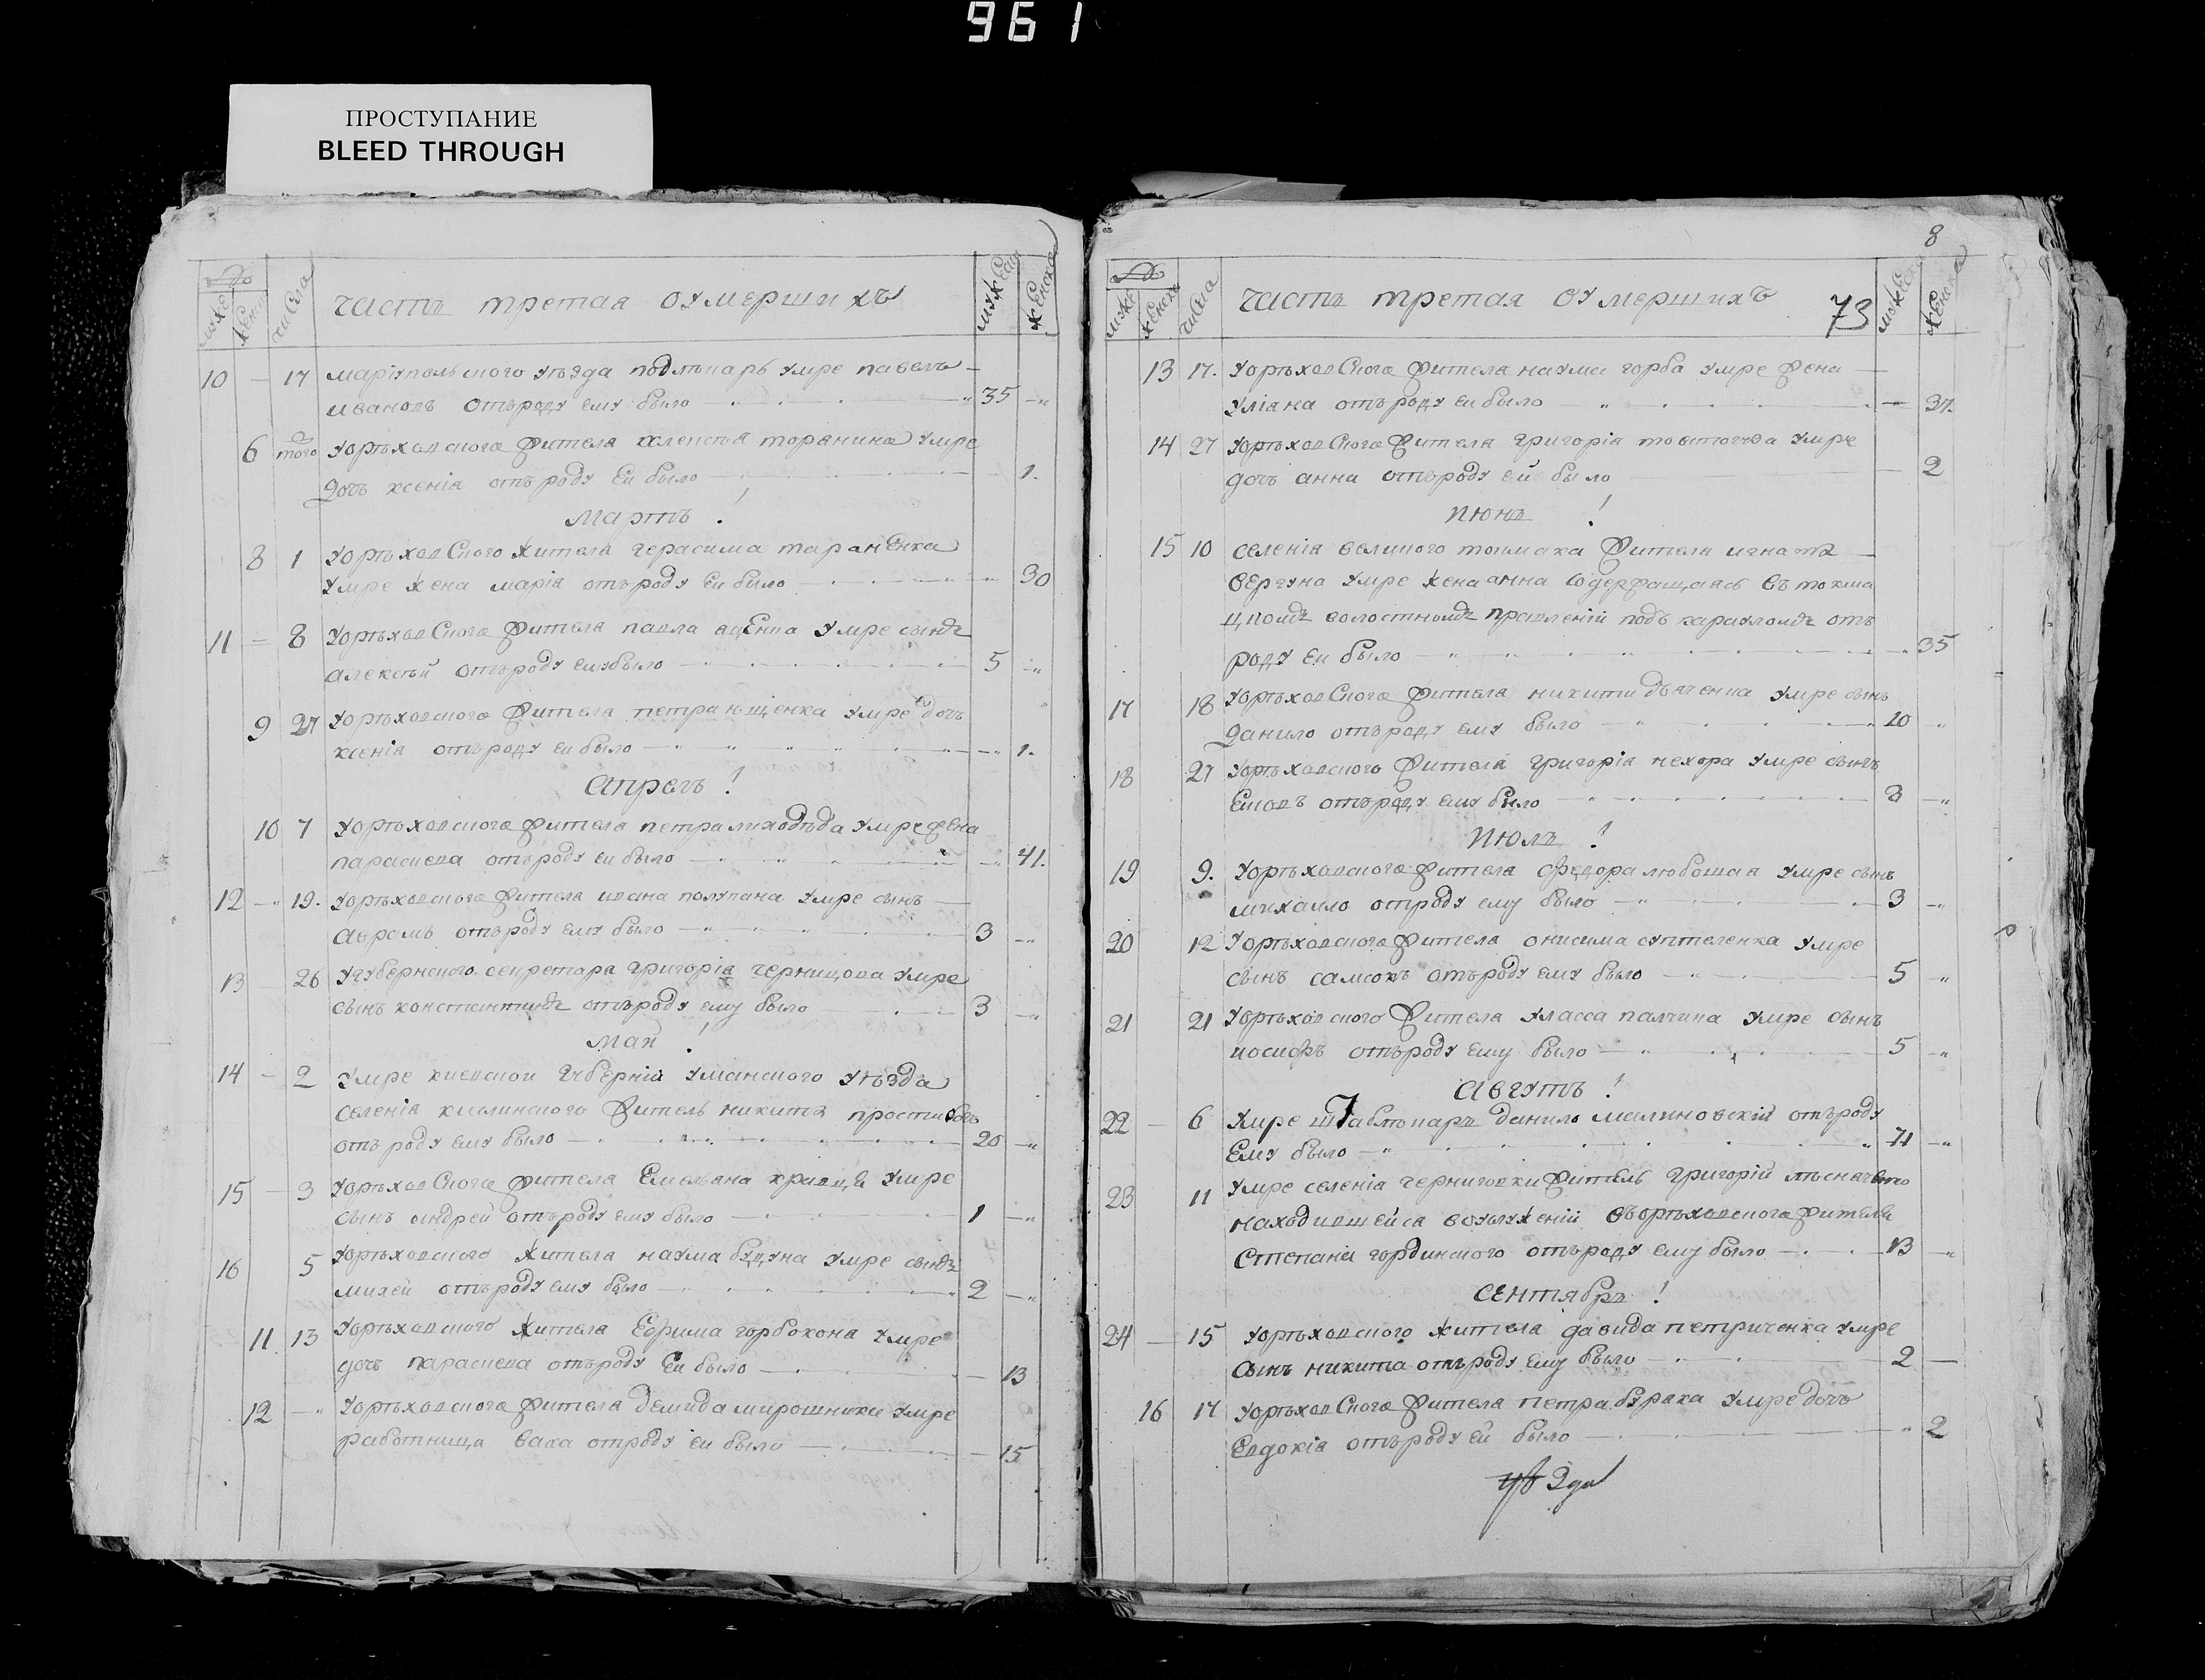 961
ПРОСТУПАНИЕ
BLEED THROUGH
№
муже женс числа
часть третая оумершихъ
мужеск женска
10 — 17 мариупольского уѣзда подлѣкарь умре павелъ —
ивановъ отъроду ему было 35
6 того уорѣховского жителя алексѣя торанина умре
дочь ксенія отъроду ей было 1.
мартъ !
8 1 уорѣховского жителя герасима тараненка
умре жена марія отъроду ей было 30
11 — 8 уорѣховского жителя павла умре сынъ
алексѣй отъроду ему было 5
9 27 уорѣховского жителя петра ющенка умре дочь
ксенія отъроду ей было 1.
апрель !
10 7 уорѣховского жителя петра лиходѣда умре жена
параскева отъроду ей было 41.
12 — 19. уорѣховского жителя ивана полупана умре сынъ —
аврамъ отъроду ему было 3
13 26 угубернского секретара григорія черницова умре
сынъ константинъ отъроду ему было 3
маи !
14 — 2 умре киевской губерніи уманского уѣзда
селенія кислинского житель никита
отъ роду ему было 20
15 — 3 уорѣховского жителя емельяна кравца умре
сынъ андрей отъроду ему было 1
16 5 уорѣховского жителя наума умре сынъ
михей отъроду ему было 2
11 13 уорѣховского жителя ефрима горбоконя умре
дочь параскева отъроду ей было 13
12 — уорѣховского жителя демида мирошника умре
работница отроду ей было 15
8
№
муже женска числа
часть третая оумершихъ 73
мужеск женска
13 17. уорѣховского жителя наума горба умре жена —
уліана отъроду ей было 37.
14 27 уорѣховского жителя григорія умре
дочь анна отъроду ей было 2
июнь !
15 10 селенія великого токмака жителя игната —
вергуна умре жена анна содержащаясь въ токма
цкомъ волостномъ правленій подъ карауломъ отъ
роду ей было 35
17 18 уорѣховского жителя никити дяченка умре сынъ
данило отъроду ему было 10
18 27 уорѣховского жителя григорія нехора умре сынъ
отъроду ему было 3
июль !
19 9. уорѣховского жителя федора умре сынъ
михаило отроду ему было 3
20 12 уорѣховского жителя онисима суптеленка умре
сынъ самсонъ отъроду ему было 5
21 21 уорѣховского жителя уласса палчина умре сынъ
иосифъ отъроду ему было 5
августъ !
22 — 6 умре штаблѣкаръ данило малиновскій отъроду
ему было 71
23 11 умре селенія черниговки житель григорій
находившейся вуслуженій уорѣховского жителя
степана гординского отъроду ему было 13
сентябрь !
24 — 15 уорѣховского жителя давида петриченка умре
сынъ никита отъроду ему было 2 —
16 17 уорѣховского жителя петра бурака умре дочь
евдокія отъроду ей было 2